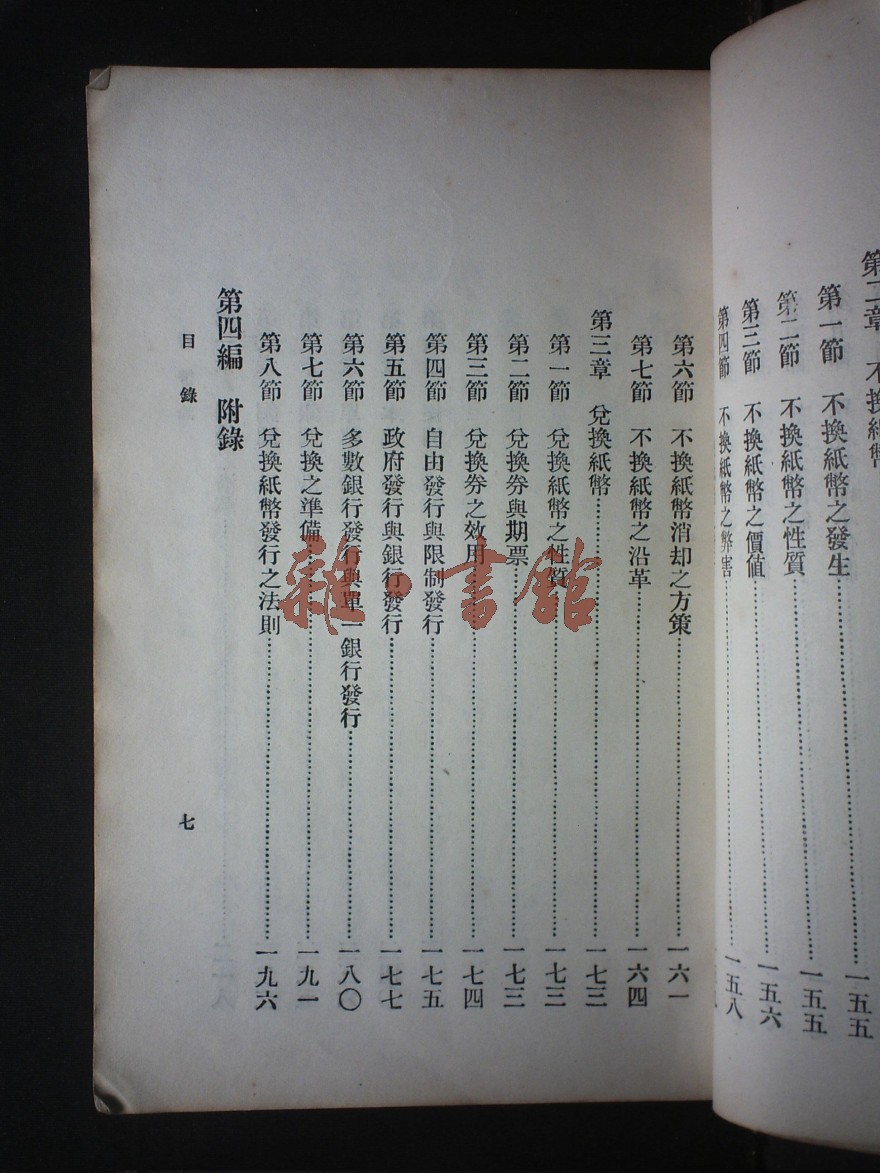 第二章　不換紙幣
第一節　不換紙幣之發生……一五五
第二節　不換紙幣之性質……一五五
第三節　不換紙幣之價値……一五六
第四節　不換紙幣之弊害……一五八
第六節　不換紙幣消却之方策……一六一
第七節　不換紙幣之沿革……一六四
第三章　兌換紙幣……一七三
第一節　兌換紙幣之性質……一七三
第二節　兌換券與期票……一七三
第三節　兌換券之效用……一七四
第四節　自由發行與限制發行……一七五
第五節　政府發行與銀行發行……一七七
第六節　多數銀行發行與單一銀行發行……一八〇
第七節　兌換之準備……一九一
第八節　兌換紙幣發行之法則……一九六
第四編　附錄
目錄
七
雜·書館